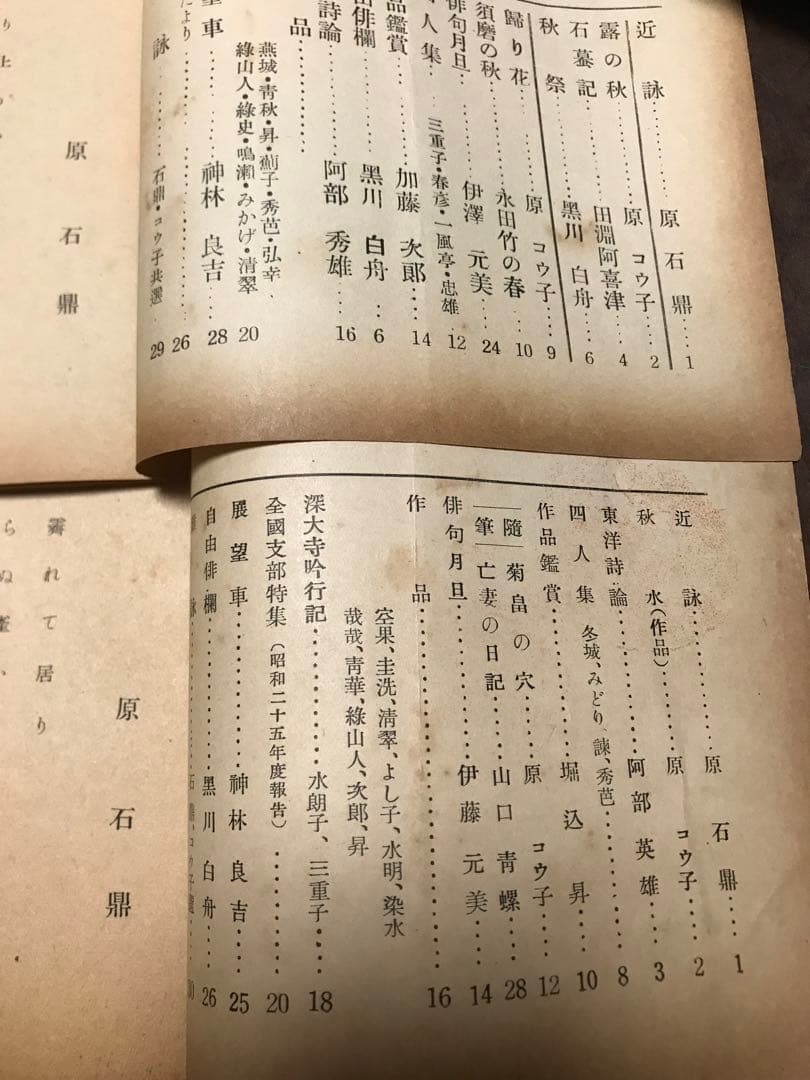 近詠………原石鼎…1
露の秋………原コウ子…2
石墓記………田淵阿喜津…4
秋祭………黒川白舟…6
歸り花………原コウ子…9
須磨の秋………永田竹の春…10
俳句月旦………伊澤元美…24
人集 三重子・春彦・一風亭・忠雄…12
品鑑賞………加藤次郎…14
俳欄………黒川白舟…6
詩論………阿部秀雄…16
品………
燕城・靑秋・昇・薊子・秀芭・弘幸、
綠山人・綠史・鳴瀬・みかげ・清翠 20
車………神林良吉…28
より………26
詠………石鼎・コウ子共選…29
原石鼎
近詠………原石鼎…1
秋水(作品)………原コウ子…2
東洋詩論………阿部英雄…3
四人集 冬城、みどり、諫、秀芭…8
作品鑑賞………堀込昇…10
隨筆
菊畠の穴………原コウ子…12
亡妻の日記………山口靑螺…28
俳句月旦………伊藤元美…14
作品………16
空果、圭洗、淸翠、よし子、水明、染水
哉哉、靑華、綠山人、次郎、昇
深大寺吟行記………水朗子、三重子…18
全國支部特集(昭和二十五年度報告)………20
展望車………神林良吉…25
自由俳欄………黒川白舟…26
詠………石鼎、コウ子選…30
原石鼎
霽れて居り
らぬ